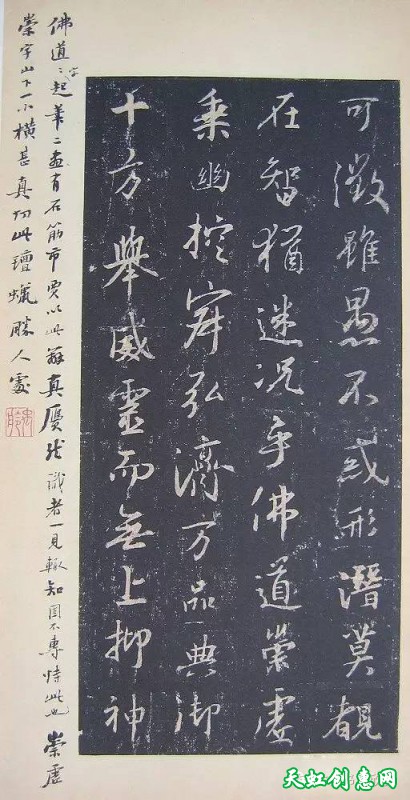 可徵雖愚不惑形潛莫覩
在智猶迷况乎佛道崇虛
乘幽控寂弘濟万品典御
十方舉威靈而無上抑神
佛道道字起筆二畫有石筋市賈以此辨真贋然識者一見輒知固不專恃此也崇虛
崇字山下一小橫甚真切此氊蠟勝人處
天虹创惠网